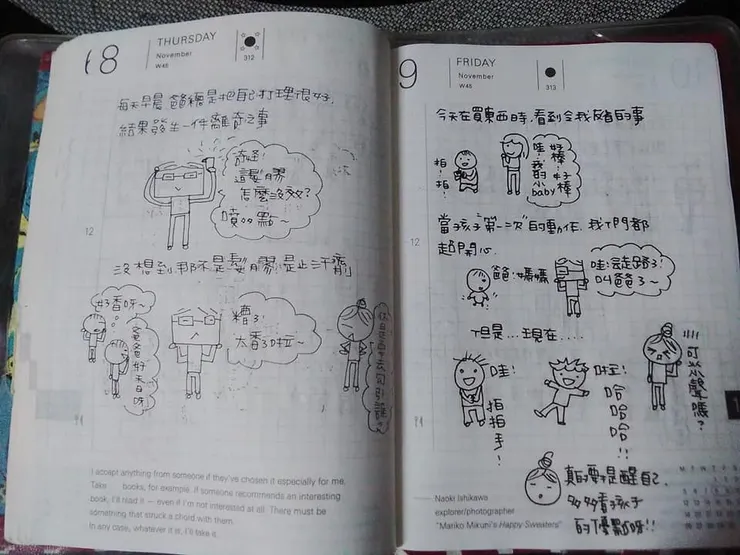 8
THURSDAY
November
W45
312
每天早晨爸爸總是把自己打理很好,
結果發生一件離奇之事
奇怪!
這髮膠
怎麼沒效?
噴多點~
12
沒想到那不是髮膠是止汗劑
好香呀~
爸爸好天日呀
糟了!
太香了啦~
I accept anything from someone if they've chosen it especially for me.
Take books, for example. If someone recommends an interesting
book, I'll read it — even if I'm not interested at all. There must be
something that struck a chord with them.
In any case, whatever it is, I'll take it.
9
FRIDAY
November
W45
313
今天在買東西時,看到令我反省的事
拍!拍!
哇!好棒!好棒
我的小baby
當孩子"第一次"的動作,我們都
超開心.
爸爸!媽媽
哇!會走路了!
叫爸爸了~
12
但是...現在....
哇!
拍拍手!
啦!
哈哈哈哈!!
可以小聲嗎?
真的要提醒自己,
多多看孩子
的優點呀!!
Naoki Ishikawa
explorer/photographer
"Mariko Mikuni's Happy Sweaters"